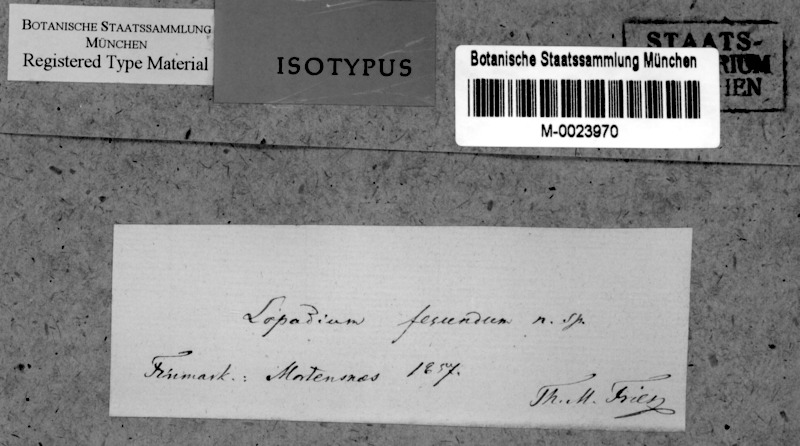 BOTANISCHE STAATSSAMMLUNG
MÜNCHEN
Registered Type Material
ISOTYPUS
Botanische Staatssammlung München
M-0023970
STAATS-
Lopadium fecundum n. sp.
Finmark.: Mortensnæs 1857.
Th. M. Fries